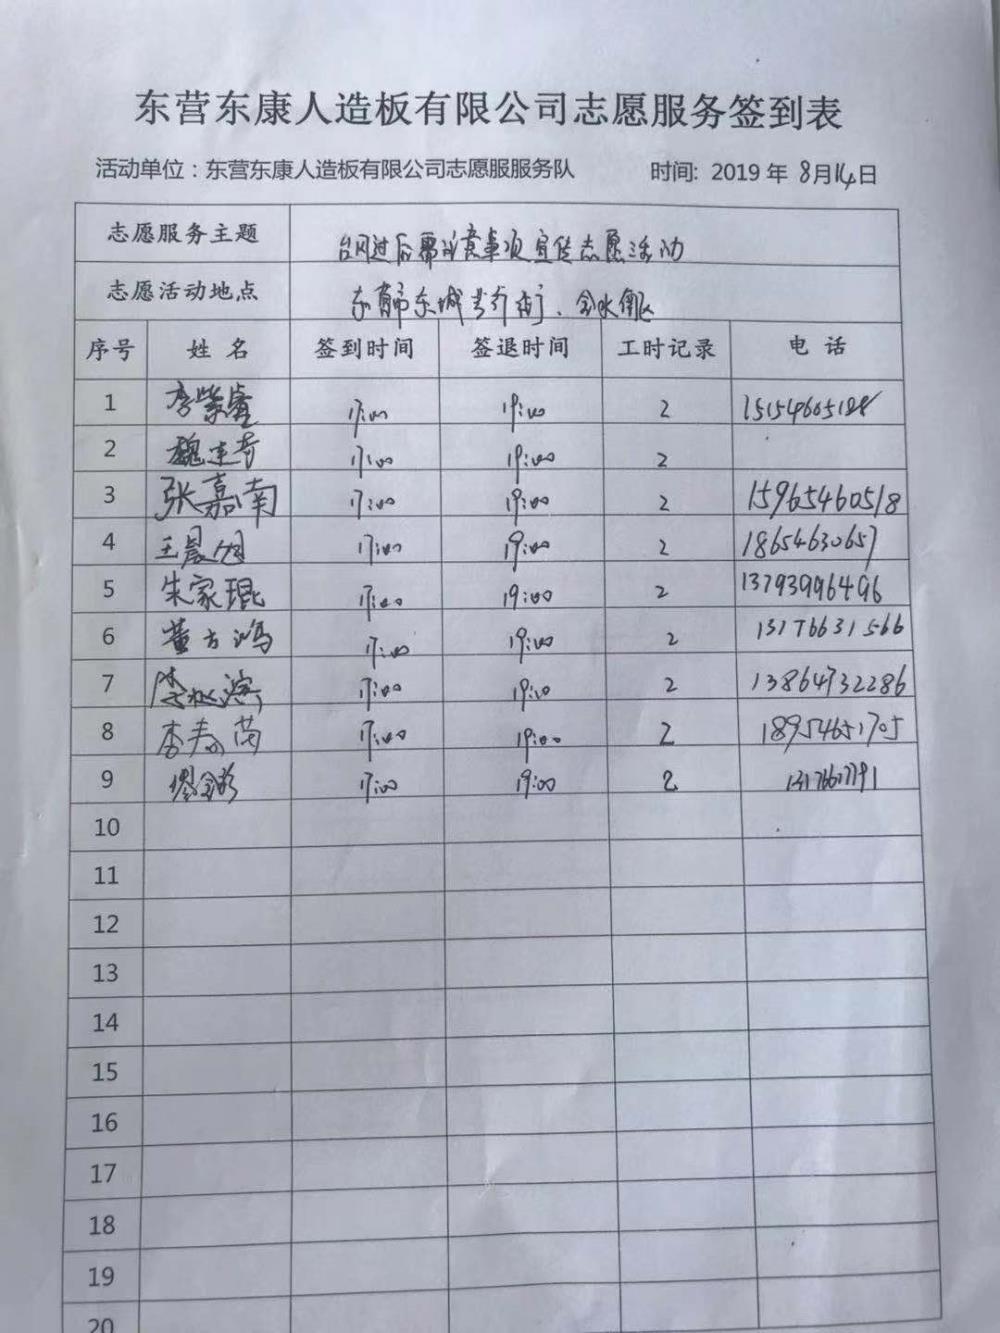 东营东康人造板有限公司志愿服务签到表
活动单位：东营东康人造板有限公司志愿服服务队 时间: 2019 年 8月14日
志愿服务主题 台风过后需注意事项宣传志愿活动
志愿活动地点 东营市东城 步行街、金水
序号 姓名 签到时间 签退时间 工时记录 电话
1 李紫睿 17:00 19:00 2
2 魏连奇 17:00 19:00 2
3 张嘉南 17:00 19:00 2 15965460518
4 王晨旭 17:00 19:00 2 18654630657
5 朱家琨 17:00 19:00 2 13793996496
6 董方鸿 17:00 19:00 2 13176631566
7 17:00 19:00 2 13864732286
8 李春茵 17:00 19:00 2 18954651705
9 17:00 19:00 2
10
11
12
13
14
15
16
17
18
19
20